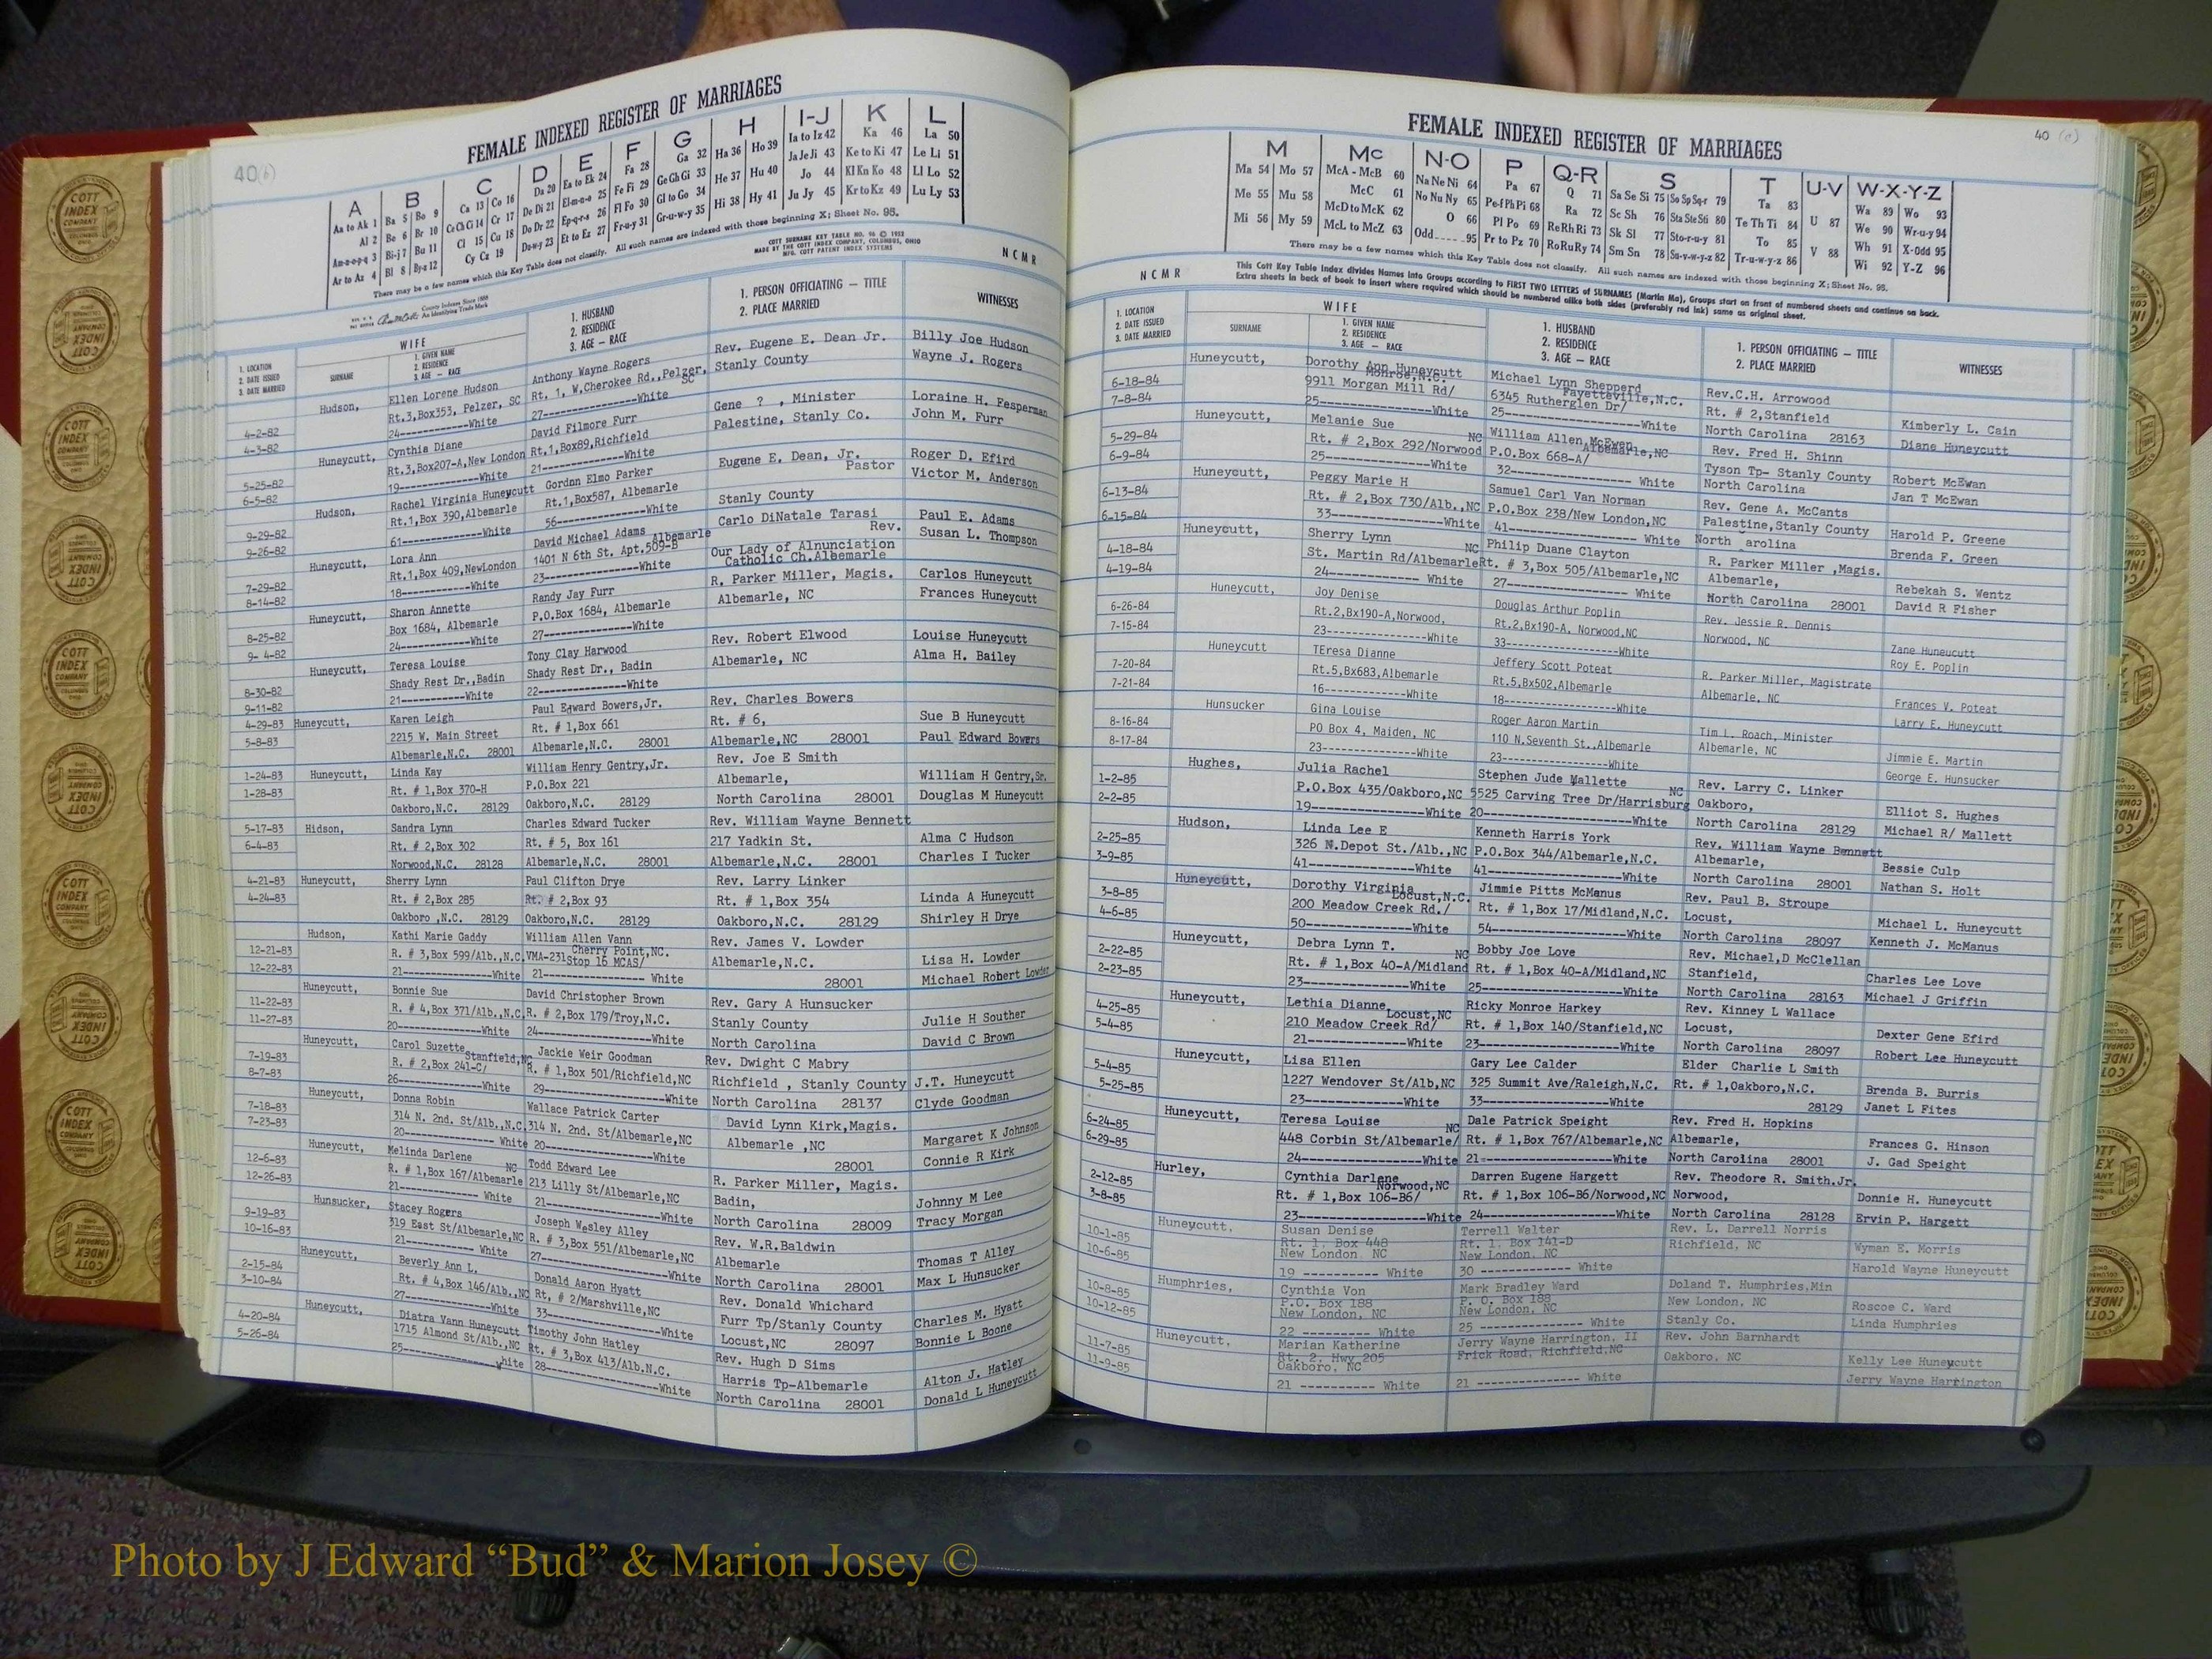 40(b)
FEMALE INDEXED REGISTER OF MARRIAGES
A B C D E F G H I-J K L
Aa to Ak 1 Ba 5 Bo 9 Ca 13 Co 16 Da 20 Ea to Ek 24 Fa 28 Ga 32 Ha 36 Ho 39 Ia to Iz 42 Ka 46 La 50
Al 2 Be 6 Br 10 Ce Ch Ci 14 Cr 17 De Di 21 El-m-n-o 25 Fe Fi 29 Ge Gh Gi 33 He 37 Hu 40 Ja Je Ji 43 Ke to Ki 47 Le Li 51
An-o-p-q 3 Bi-j 7 Bu 11 Cl 15 Cu 18 Do Dr 22 Ep-q-r-s 26 Fl Fo 30 Gl to Go 34 Hi 38 Hy 41 Jo 44 Kl Kn Ko 48 Ll Lo 52
Ar to Az 4 Bl 8 By-z 12 Cy Cz 19 Du-w-y 23 Et to Ez 27 Fr-u-y 31 Gr-u-w-y 35 Ju Jy 45 Kr to Kz 49 Lu Ly 53
There may be a few names which this Key Table does not classify. All such names are indexed with those beginning X; Sheet No. 95.
COTT SURNAME KEY TABLE NO. 96 © 1952
MADE BY THE COTT INDEX COMPANY, COLUMBUS, OHIO
MFG. COTT PATENT INDEX SYSTEMS
County Indexes Since 1888
An Identifying Trade Mark
N C M R
1. LOCATION
2. DATE ISSUED
3. DATE MARRIED
WIFE
SURNAME
1. GIVEN NAME
2. RESIDENCE
3. AGE — RACE
1. HUSBAND
2. RESIDENCE
3. AGE — RACE
1. PERSON OFFICIATING — TITLE
2. PLACE MARRIED
WITNESSES
Hudson, Ellen Lorene Hudson Anthony Wayne Rogers Rev. Eugene E. Dean Jr. Billy Joe Hudson
4-2-82 Rt.3,Box353, Pelzer, SC Rt. 1, W.Cherokee Rd.,Pelzer, SC Stanly County Wayne J. Rogers
4-3-82 24------------White 27----------------White
Huneycutt, Cynthia Diane David Filmore Furr Gene ? , Minister Loraine H. Fesperman
5-25-82 Rt.3,Box207-A,New London Rt.1,Box89,Richfield Palestine, Stanly Co. John M. Furr
6-5-82 19------------White 21-------------White
Hudson, Rachel Virginia Huneycutt Gordon Elmo Parker Eugene E. Dean, Jr. Pastor Roger D. Efird
9-29-82 Rt.1,Box 390,Albemarle Rt.1,Box587, Albemarle Stanly County Victor M. Anderson
9-26-82 61-------------White 56--------------White
Huneycutt, Lora Ann David Michael Adams Albemarle Carlo DiNatale Tarasi Rev. Paul E. Adams
7-29-82 Rt.1,Box 409,NewLondon 1401 N 6th St. Apt.509-B Our Lady of Alnunciation Susan L. Thompson
8-14-82 18------------White 23---------------White Catholic Ch.Albemarle
Huneycutt, Sharon Annette Randy Jay Furr R. Parker Miller, Magis. Carlos Huneycutt
8-25-82 Box 1684, Albemarle P.O.Box 1684, Albemarle Albemarle, NC Frances Huneycutt
9- 4-82 24------------White 27--------------White
Huneycutt, Teresa Louise Tony Clay Harwood Rev. Robert Elwood Louise Huneycutt
8-30-82 Shady Rest Dr.,Badin Shady Rest Dr., Badin Albemarle, NC Alma H. Bailey
9-11-82 21------------White 22--------------White
4-29-83 Huneycutt, Karen Leigh Paul Edward Bowers,Jr. Rev. Charles Bowers Sue B Huneycutt
5-8-83 2215 W. Main Street Rt. # 1,Box 661 Rt. # 6, Paul Edward Bowers
Albemarle,N.C. 28001 Albemarle,N.C. 28001 Albemarle,NC 28001
1-24-83 Huneycutt, Linda Kay William Henry Gentry,Jr. Rev. Joe E Smith William H Gentry,Sr.
1-28-83 Rt. # 1,Box 370-H P.O.Box 221 Albemarle, Douglas M Huneycutt
Oakboro,N.C. 28129 Oakboro,N.C. 28129 North Carolina 28001
5-17-83 Hidson, Sandra Lynn Charles Edward Tucker Rev. William Wayne Bennett Alma C Hudson
6-4-83 Rt. # 2,Box 302 Rt. # 5, Box 161 217 Yadkin St. Charles I Tucker
Norwood,N.C. 28128 Albemarle,N.C. 28001 Albemarle,N.C. 28001
4-21-83 Huneycutt, Sherry Lynn Paul Clifton Drye Rev. Larry Linker Linda A Huneycutt
4-24-83 Rt. # 2,Box 285 Rt. # 2,Box 93 Rt. # 1,Box 354 Shirley H Drye
Oakboro ,N.C. 28129 Oakboro,N.C. 28129 Oakboro,N.C. 28129
Hudson, Kathi Marie Gaddy William Allen Vann Rev. James V. Lowder Lisa H. Lowder
12-21-83 R. # 3,Box 599/Alb.,N.C. VMA-231 Stop 16 MCAS/ Cherry Point,NC. Albemarle,N.C. Michael Robert Lowder
12-22-83 21-------------White 21------------- White 28001
Huneycutt, Bonnie Sue David Christopher Brown Rev. Gary A Hunsucker Julie H Souther
11-22-83 R. # 4,Box 371/Alb.,N.C. R. # 2,Box 179/Troy,N.C. Stanly County David C Brown
11-27-83 20-------------White 24----------------White North Carolina
Huneycutt, Carol Suzette Jackie Weir Goodman Rev. Dwight C Mabry J.T. Huneycutt
7-19-83 R. # 2,Box 241-C/ Stanfield,NC R. # 1,Box 501/Richfield,NC Richfield , Stanly County Clyde Goodman
8-7-83 26-------------White 29----------------White North Carolina 28137
Huneycutt, Donna Robin Wallace Patrick Carter David Lynn Kirk,Magis. Margaret K Johnson
7-18-83 314 N. 2nd. St/Alb.,N.C. 314 N. 2nd. St/Albemarle,NC Albemarle ,NC Connie R Kirk
7-23-83 20-------------- White 20---------------White 28001
Huneycutt, Melinda Darlene Todd Edward Lee R. Parker Miller, Magis. Johnny M Lee
12-6-83 R. # 1,Box 167/Albemarle NC 213 Lilly St/Albemarle,NC Badin, Tracy Morgan
12-26-83 21------------- White 21----------------White North Carolina 28009
Hunsucker, Stacey Rogers Joseph Wesley Alley Rev. W.R.Baldwin Thomas T Alley
9-19-83 319 East St/Albemarle,NC R. # 3,Box 551/Albemarle,NC Albemarle Max L Hunsucker
10-16-83 21------------ White 27------------------White North Carolina 28001
Huneycutt, Beverly Ann L. Donald Aaron Hyatt Rev. Donald Whichard Charles M. Hyatt
2-15-84 Rt. # 4,Box 146/Alb.,NC Rt, # 2/Marshville,NC Furr Tp/Stanly County Bonnie L Boone
3-10-84 27--------------White 33----------------White Locust,NC 28097
Huneycutt, Diatra Vann Huneycutt Timothy John Hatley Rev. Hugh D Sims Alton J. Hatley
4-20-84 1715 Almond St/Alb.,NC Rt. # 3,Box 413/Alb.N.C. Harris Tp-Albemarle Donald L Huneycutt
5-26-84 25----------------White 28------------------White North Carolina 28001
40 (a)
FEMALE INDEXED REGISTER OF MARRIAGES
M Mc N-O P Q-R S T U-V W-X-Y-Z
Ma 54 Mo 57 McA - McB 60 Na Ne Ni 64 Pa 67 Q 71 Sa Se Si 75 So Sp Sq-r 79 Ta 83 Wa 89 Wo 93
Me 55 Mu 58 McC 61 No Nu Ny 65 Pe-f Ph Pi 68 Ra 72 Sc Sh 76 Sta Ste Sti 80 Te Th Ti 84 U 87 We 90 Wr-u-y 94
Mi 56 My 59 McD to McK 62 O 66 Pl Po 69 Re Rh Ri 73 Sk Sl 77 Sto-r-u-y 81 To 85 V 88 Wh 91 X-Odd 95
McL to McZ 63 Odd 95 Pr to Pz 70 Ro Ru Ry 74 Sm Sn 78 Su-v-w-y-z 82 Tr-u-w-y-z 86 Wi 92 Y-Z 96
There may be a few names which this Key Table does not classify. All such names are indexed with those beginning X; Sheet No. 95.
This Cott Key Table Index divides Names into Groups according to FIRST TWO LETTERS of SURNAMES (Martin Ma), Groups start on front of numbered sheets and continue on back.
Extra sheets in back of book to insert where required which should be numbered alike both sides (preferably red ink) same as original sheet.
N C M R
1. LOCATION
2. DATE ISSUED
3. DATE MARRIED
WIFE
SURNAME
1. GIVEN NAME
2. RESIDENCE
3. AGE — RACE
1. HUSBAND
2. RESIDENCE
3. AGE — RACE
1. PERSON OFFICIATING — TITLE
2. PLACE MARRIED
WITNESSES
Huneycutt, Dorothy Ann Huneycutt Michael Lynn Shepperd Rev.C.H. Arrowood Kimberly L. Cain
6-18-84 9911 Morgan Mill Rd/ Monroe,N.C. 6345 Rutherglen Dr/ Fayetteville,N.C. Rt. # 2,Stanfield Diane Huneycutt
7-8-84 25----------------White 25----------------White North Carolina 28163
Huneycutt, Melanie Sue William Allen McEwen Rev. Fred H. Shinn Robert McEwan
5-29-84 Rt. # 2,Box 292/Norwood NC P.O.Box 668-A/ Albemarle,NC Tyson Tp- Stanly County Jan T McEwan
6-9-84 25----------------White 32---------------- White North Carolina
Huneycutt, Peggy Marie H Samuel Carl Van Norman Rev. Gene A. McCants Harold P. Greene
6-13-84 Rt. # 2,Box 730/Alb.,NC P.O.Box 238/New London,NC Palestine,Stanly County Brenda F. Green
6-15-84 33----------------White 41---------------- White North arolina
Huneycutt, Sherry Lynn Philip Duane Clayton R. Parker Miller ,Magis. Rebekah S. Wentz
4-18-84 St. Martin Rd/Albemarle NC Rt. # 3,Box 505/Albemarle,NC Albemarle, David R Fisher
4-19-84 24-------------- White 27---------------- White North Carolina 28001
Huneycutt, Joy Denise Douglas Arthur Poplin Rev. Jessie R. Dennis Zane Huneucutt
6-26-84 Rt.2,Bx190-A,Norwood, Rt.2,Bx190-A, Norwood,NC Norwood, NC Roy E. Poplin
7-15-84 23----------------White 33----------------White
Huneycutt TEresa Dianne Jeffery Scott Poteat R. Parker Miller, Magistrate Frances V. Poteat
7-20-84 Rt.5,Bx683,Albemarle Rt.5,Bx502,Albemarle Albemarle, NC Larry E. Huneycutt
7-21-84 16-------------White 18----------------White
Hunsucker Gina Louise Roger Aaron Martin Tim L. Roach, Minister Jimmie E. Martin
8-16-84 PO Box 4, Maiden, NC 110 N.Seventh St.,Albemarle Albemarle, NC George E. Hunsucker
8-17-84 23---------------White 23----------------White
Hughes, Julia Rachel Stephen Jude Mallette Rev. Larry C. Linker Elliot S. Hughes
1-2-85 P.O.Box 435/Oakboro,NC 5525 Carving Tree Dr/Harrisburg NC Oakboro, Michael R/ Mallett
2-2-85 19------------------White 20------------------White North Carolina 28129
Hudson, Linda Lee E Kenneth Harris York Rev. William Wayne Bennett Bessie Culp
2-25-85 326 N.Depot St./Alb.,NC P.O.Box 344/Albemarle,N.C. Albemarle, Nathan S. Holt
3-9-85 41----------------White 41-----------------White North Carolina 28001
Huneycutt, Dorothy Virginia Jimmie Pitts McManus Rev. Paul B. Stroupe Michael L. Huneycutt
3-8-85 200 Meadow Creek Rd./ Locust,N.C. Rt. # 1,Box 17/Midland,N.C. Locust, Kenneth J. McManus
4-6-85 50----------------White 54------------------White North Carolina 28097
Huneycutt, Debra Lynn T. Bobby Joe Love Rev. Michael,D McClellan Charles Lee Love
2-22-85 Rt. # 1,Box 40-A/Midland NC Rt. # 1,Box 40-A/Midland,NC Stanfield, Michael J Griffin
2-23-85 23---------------White 25------------------White North Carolina 28163
Huneycutt, Lethia Dianne Ricky Monroe Harkey Rev. Kinney L Wallace Dexter Gene Efird
4-25-85 210 Meadow Creek Rd/ Locust,NC Rt. # 1,Box 140/Stanfield,NC Locust, Robert Lee Huneycutt
5-4-85 21---------------White 23------------------White North Carolina 28097
Huneycutt, Lisa Ellen Gary Lee Calder Elder Charlie L Smith Brenda B. Burris
5-4-85 1227 Wendover St/Alb,NC 325 Summit Ave/Raleigh,N.C. Rt. # 1,Oakboro,N.C. Janet L Fites
5-25-85 23---------------White 33----------------White 28129
Huneycutt, Teresa Louise Dale Patrick Speight Rev. Fred H. Hopkins Frances G. Hinson
6-24-85 448 Corbin St/Albemarle/ NC Rt. # 1,Box 767/Albemarle,NC Albemarle, J. Gad Speight
6-29-85 24------------------White 21------------------White North Carolina 28001
Hurley, Cynthia Darlene Darren Eugene Hargett Rev. Theodore R. Smith.Jr. Donnie H. Huneycutt
2-12-85 Rt. # 1,Box 106-B6/ Norwood,NC Rt. # 1,Box 106-B6/Norwood,NC Norwood, Ervin P. Hargett
3-8-85 23------------------White 24------------------White North Carolina 28128
Huneycutt, Susan Denise Terrell Walter Rev. L. Darrell Norris Wyman E. Morris
10-1-85 Rt. 1, Box 448 Rt. 1, Box 141-D Richfield, NC Harold Wayne Huneycutt
10-6-85 New London, NC New London, NC
19 ---------- White 30 ------------ White
Humphries, Cynthia Von Mark Bradley Ward Doland T. Humphries,Min Roscoe C. Ward
10-8-85 P.O. Box 188 P. O. Box 188 New London, NC Linda Humphries
10-12-85 New London, NC New London, NC Stanly Co.
22 --------- White 25 ------------ White
Huneycutt, Marian Katherine Jerry Wayne Harrington, II Rev. John Barnhardt Kelly Lee Huneycutt
11-7-85 Rt. 2, Hwy 205 Frick Road, Richfield,NC Oakboro, NC Jerry Wayne Harrington
11-9-85 Oakboro, NC
21 ---------- White 21 -------------- White
COTT INDEX COMPANY
Photo by J Edward “Bud” & Marion Josey ©